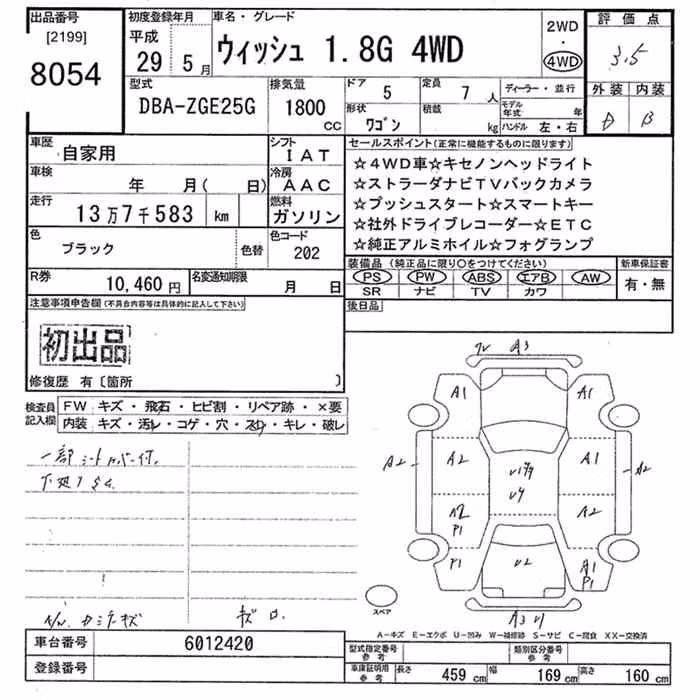 出品番号
[2199]
8054
初度登録年月
平成
29 5月
車名・グレード
ウィッシュ 1.8G 4WD
2WD
・
4WD
評価点
3.5
外装 内装
B
型式
DBA-ZGE25G
排気量
1800
CC
ドア 5
定員 7 人
形状 ワゴン
積載 kg
ディーラー・並行
モデル年式 年
ハンドル 左・右
車歴 自家用
シフト IAT
車検 年 月( 日)
冷房 AAC
走行 13万7千583 km
燃料 ガソリン
色 ブラック 色替
色コード 202
R券 10,460円
名変通知期限 月 日
セールスポイント(正常に機能するものに限ります)
☆4WD車☆キセノンヘッドライト
☆ストラーダナビTVバックカメラ
☆プッシュスタート☆スマートキー
☆社外ドライブレコーダー☆ETC
☆純正アルミホイル☆フォグランプ
装備品(純正品に限り○をつけてください)
PS PW ABS エアB AW
SR ナビ TV カワ
新車保証書
有・無
後日品
注意事項申告欄(不具合内容等は具体的に記入して下さい)
初出品
修復歴 有〔箇所 〕
検査員記入欄
FW キズ・飛石・ヒビ割・リペア跡・×要
内装 キズ・汚レ・コゲ・穴・スレ・キレ・破レ
一部シートカバー付
A3
A1 A1
A2 A2 A1 A2
U4
A2 A2
P1
P1 U2 A1
P1
スペア
A3 U1
A-キズ E-エクボ U-凹み W-補修跡 S-サビ C-腐食 XX-交換済
車台番号 6012420
登録番号
型式指定番号参考
類別区分番号参考
車庫証明用参考 長さ 459cm 幅 169cm 高さ 160cm